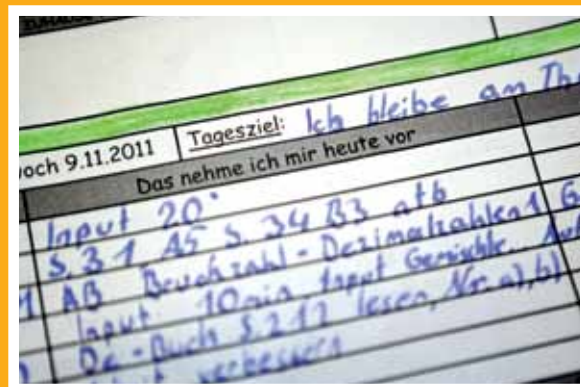 och 9.11.2011 Tagesziel: Ich bleibe am Th
Das nehme ich mir heute vor
Input 20'
S. 31 A5 S. 34 B3 a+b
AB Bruchzahl - Dezimalzahlen 1 G
Input 10min, Input Gemischte
De-Buch S. 212 lesen, Nr. a), b)
verbessern